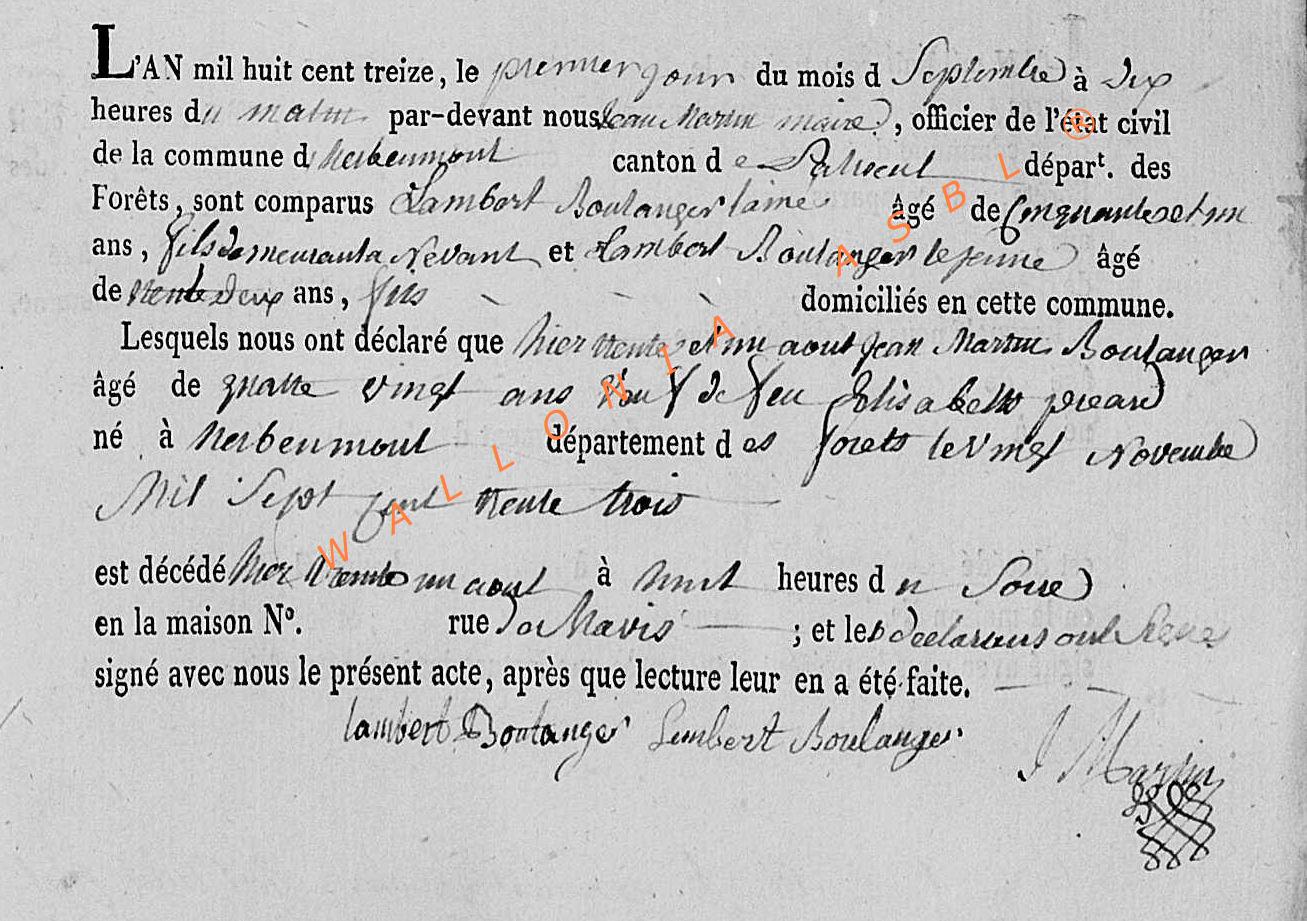 L'AN mil huit cent treize, le premier jour du mois d Septembre à dix
heures du matin par-devant nous Jean Martin maire, officier de l'état civil
de la commune d herbeumont canton de Paliseul départ. des
Forêts, sont comparus Lambert Boulanger lainé âgé de Cinquante et un
ans, fils demeurant a Nevant et Lambert Boulanger le jeune âgé
de trente deux ans, fils domiciliés en cette commune.
Lesquels nous ont déclaré que hier trente et un aout Jean Martin Boulanger
âgé de quatre vingt ans veuf de feu Elisabeth
né à herbeumont département des forets le vingt Novembre
Mil Sept cent trente trois
est décédé hier trente un aout à huit heures du Soire
en la maison N°. rue ; et les declarans ont
signé avec nous le présent acte, après que lecture leur en a été faite.
lambert Boulanger Lambert Boulanger
J Martin
WALLONIA ASBL ®